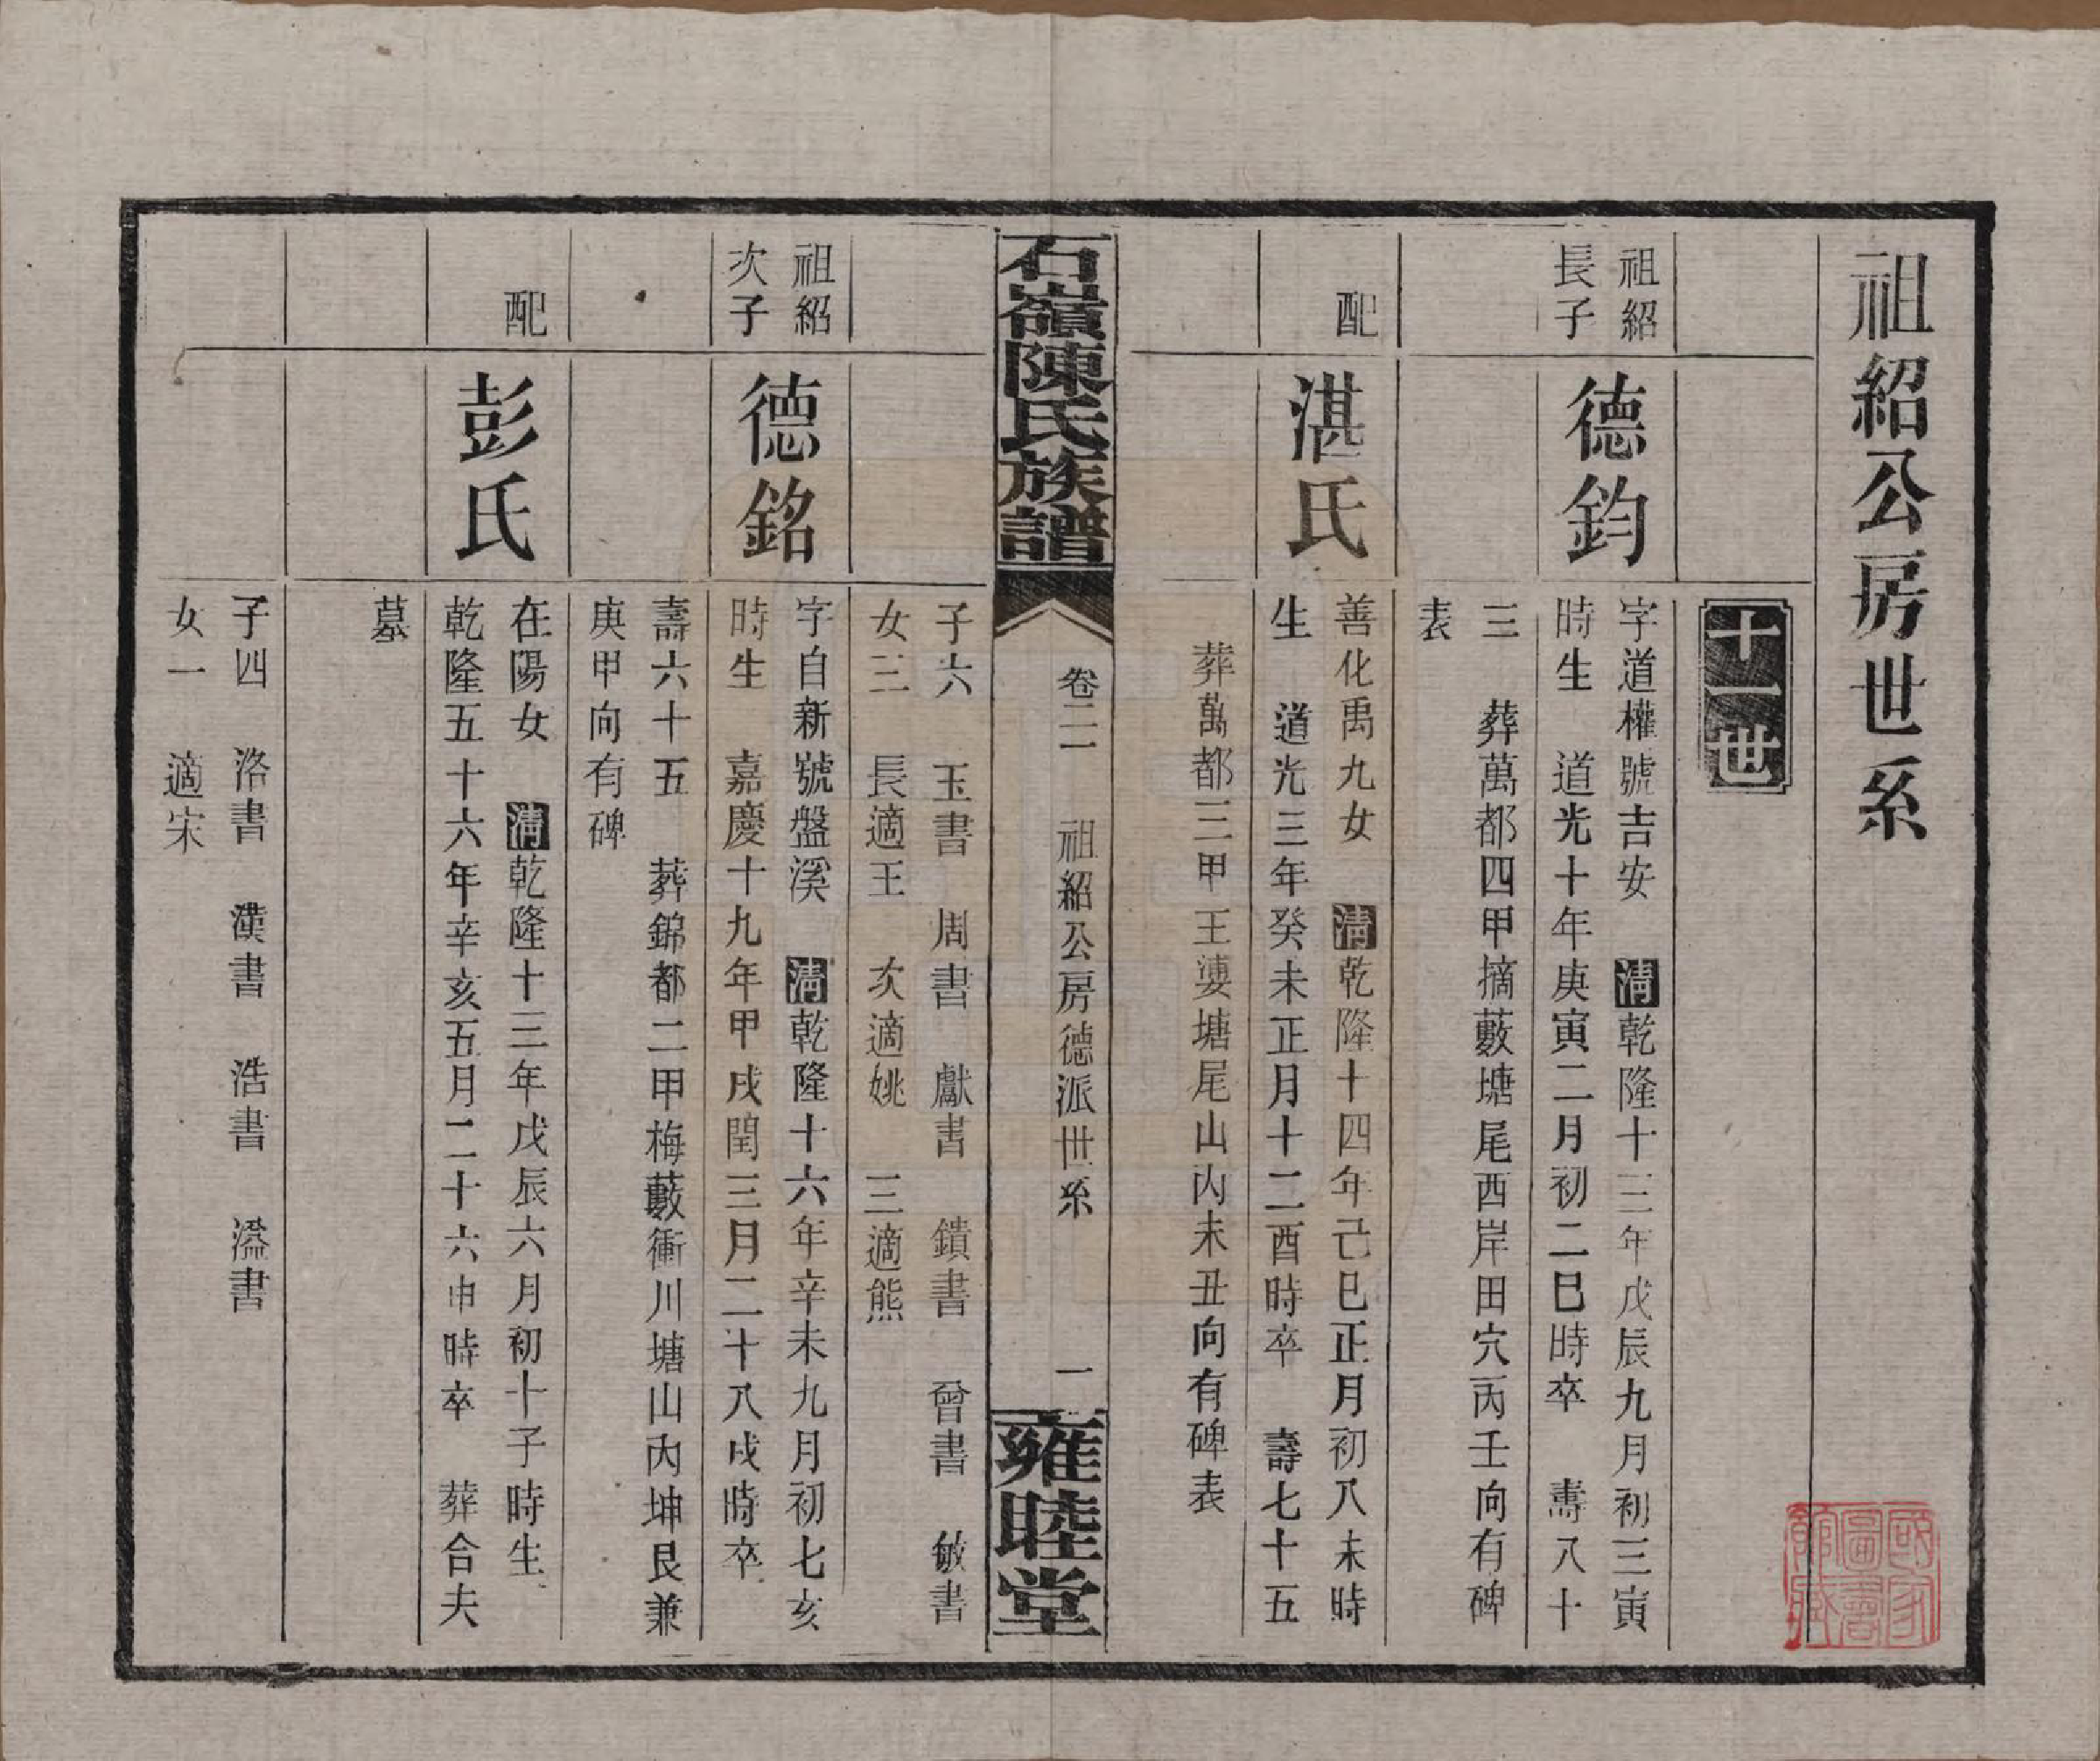 祖紹公房世系
十一世
祖紹
長子
德鈞
字道權號吉安 清乾隆十三年戊辰九月初三寅
時生 道光十年庚寅二月初二巳時卒 壽八十
三 葬萬都四甲摘藪塘尾西岸田穴丙壬向有碑
表
配
湛氏
善化禹九女 清乾隆十四年己巳正月初八未時
生 道光三年癸未正月十二酉時卒 壽七十五
葬萬都三甲王婆塘尾山內未丑向有碑表
石嶺陳氏族譜
卷二 祖紹公房德派世系 一
雍睦堂
子六 玉書 周書 獻書 鐀書 曾書 敏書
女三 長適王 次適姚 三適熊
祖紹
次子
德銘
字自新號盤溪 清乾隆十六年辛未九月初七亥
時生 嘉慶十九年甲戌閏三月二十八戌時卒
壽六十五 葬錦都二甲梅藪衝川塘山內坤艮兼
庚甲向有碑
配
彭氏
在陽女 清乾隆十三年戊辰六月初十子時生
乾隆五十六年辛亥五月二十六申時卒 葬合夫
墓
子四 洛書 漢書 浩書 溢書
女一 適宋
國家圖書館藏